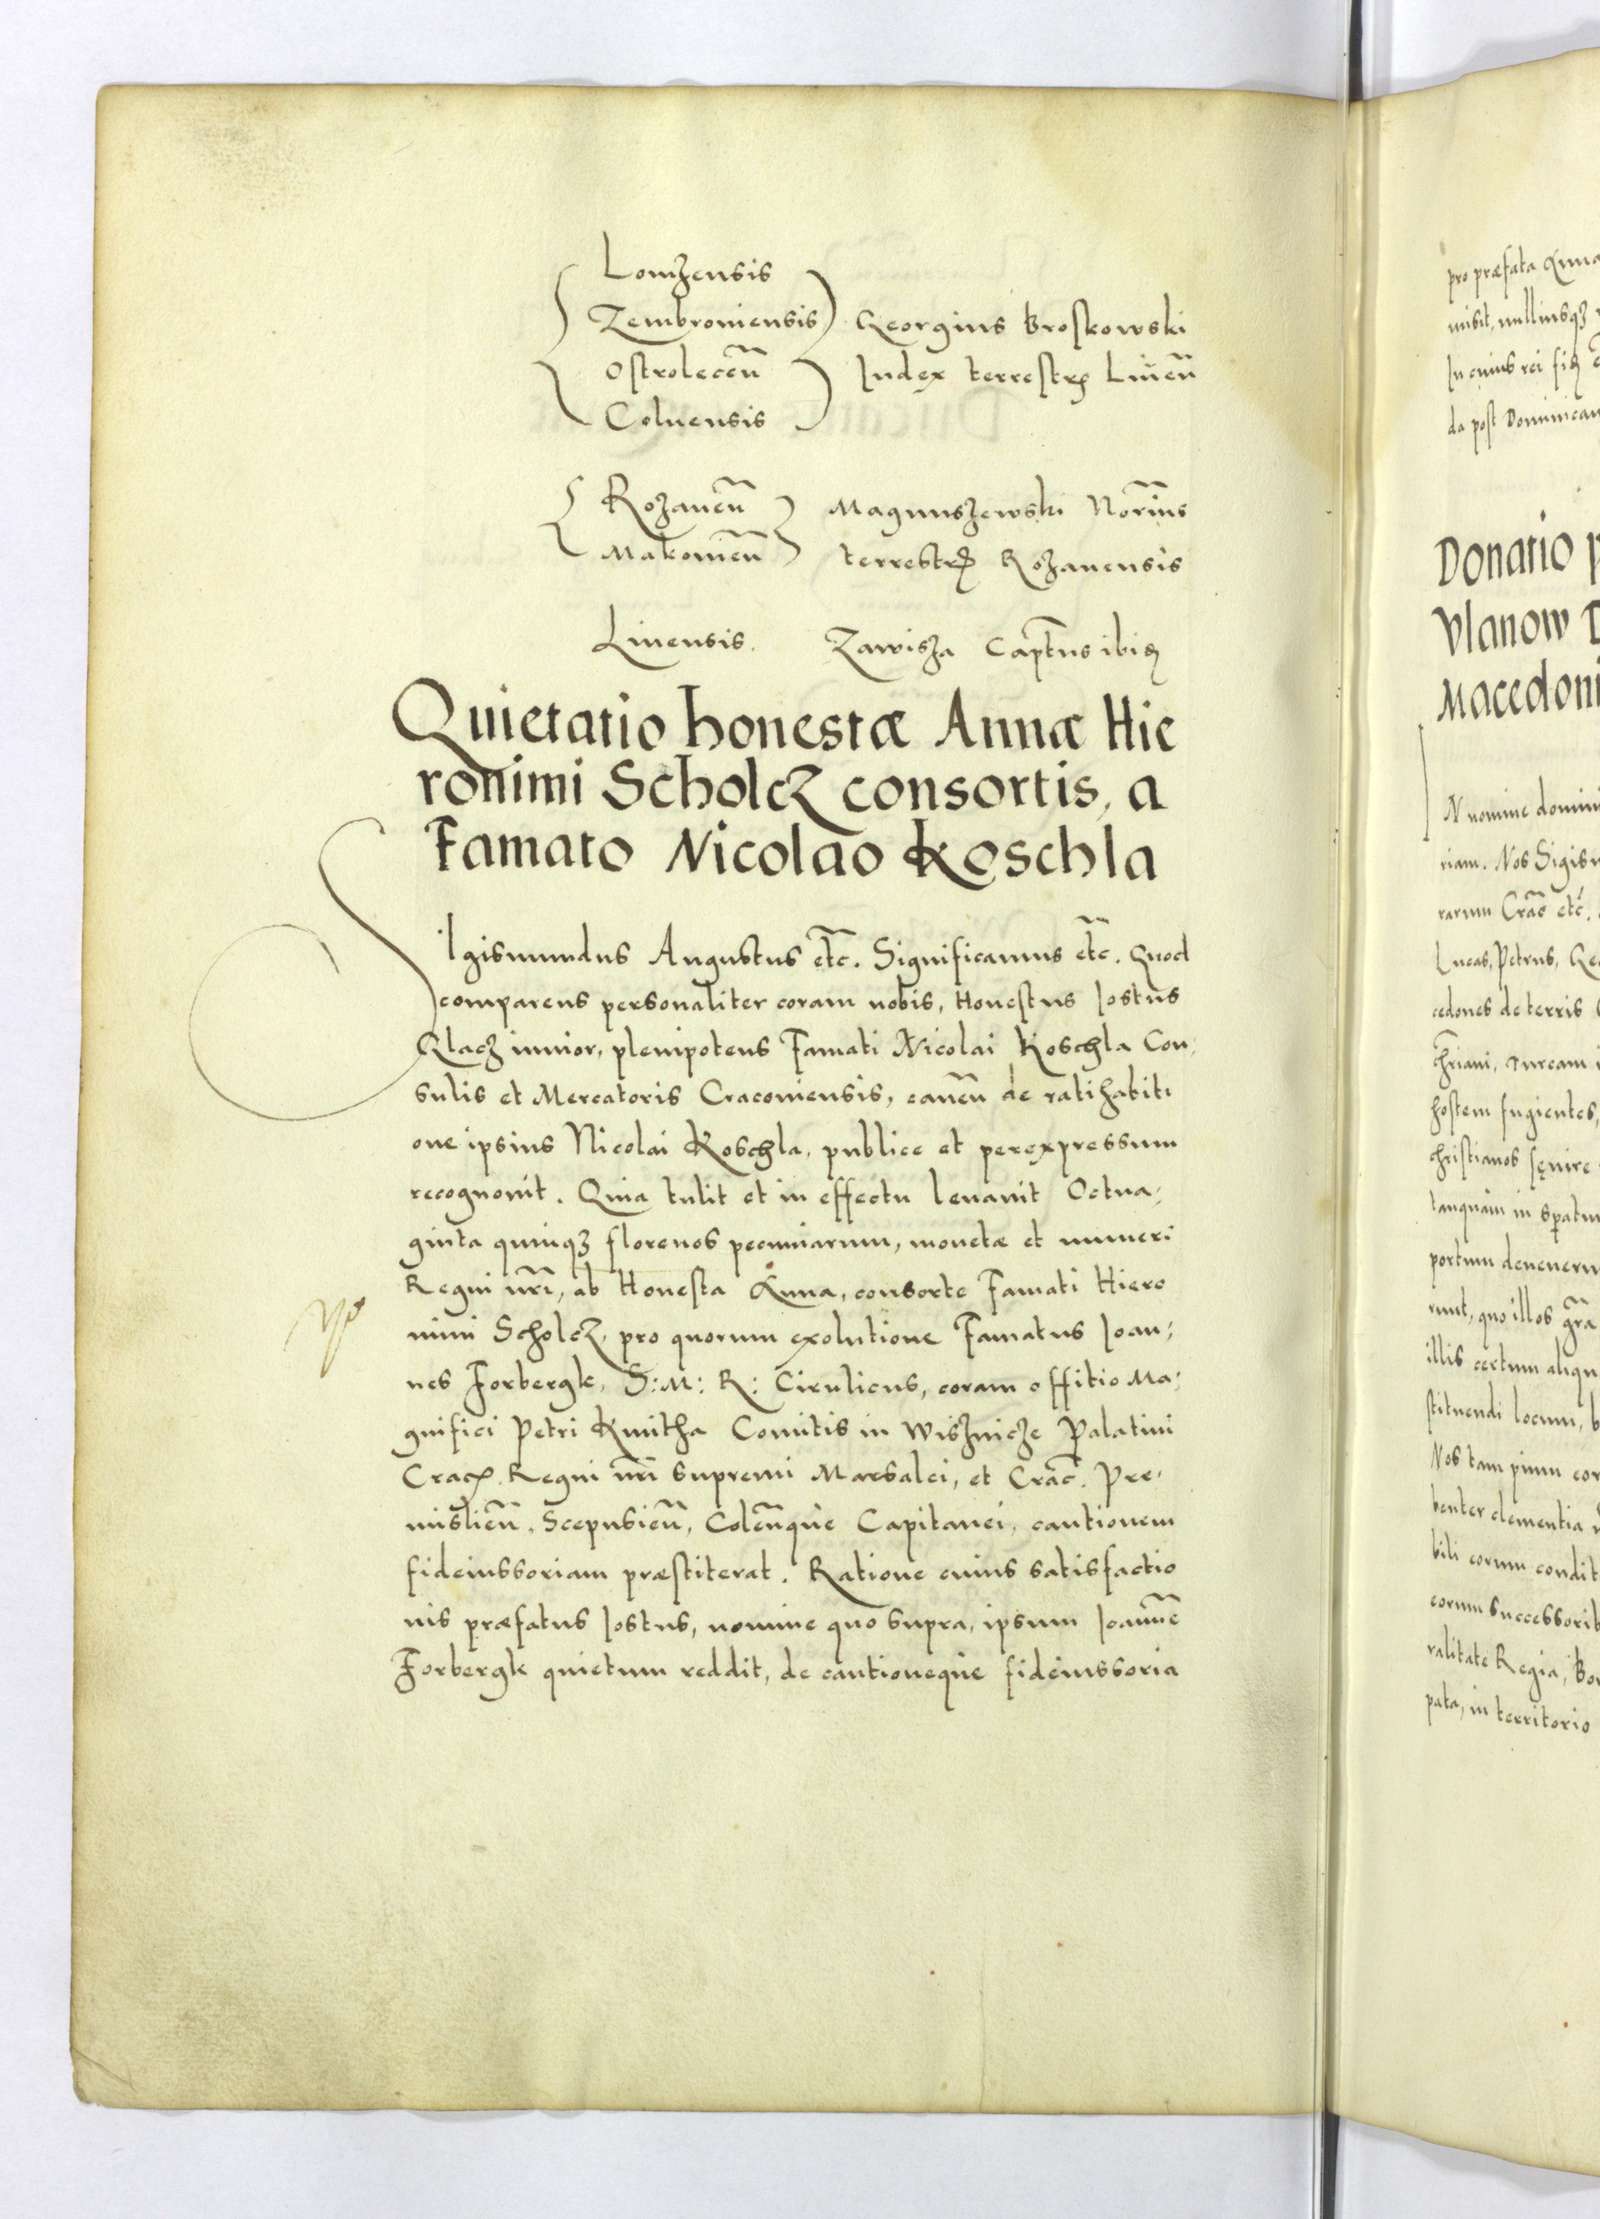 Lomzensis
Zembroniensis Georgius Broskowski
Ostrolecen̄ Iudex terrestrꝭ Liuen̄
Coluensis
Rozanen̄ Magnuszewski Nōrius
Makouien̄ terrestrꝭ Rozanensis
Liuensis. Zawisza Cap̄tus ibiꝫ
Quietatio honestæ Annæ Hie
ronimi Scholcz consortis, a
Famato Nicolao Koschla
SIgismundus Augustus et̄c. Significamus et̄c. Quod
comparens personaliter coram nobis, Honestus Iostus
Glacz iunior, plenipotens Famati Nicolai Koschla Con,
sulis et Mercatoris Cracouiensis, cauen̄ de ratihabiti
one ipsius Nicolai Koschla, publice et per expressum
recognouit. Quia tulit et in effectu leuauit Octua,
ginta quinqꝫ florenos pecuniarum, monetæ et numeri
Regni nr̄i, ab Honesta Anna, consorte Famati Hiero
nimi Scholcz, pro quorum exolutione Famatus Ioan,
nes Forbergk, S: M: R: Cirulicus, coram offitio Ma,
gnifici Petri Kmitha Comitis in Wisznicze Palatini
Cracꝭ. Regni nr̄i supremi Marsalci, et Crāc. Pre,
mislien̄. Scepusien̄, Colen̄que Capitanei, cautionem
fideiussoriam præstiterat. Ratione cuius satisfactio
nis præfatus Iostus, nomine quo supra, ipsum Ioannē
Forbergk quietum reddit, de cautioneque fideiussoria
pro præfata Anna
misit, nulliusqꝫ
In cuius rei fiꝫ
da post Dominicam
Donatio p
Vlanow D
Macedoni
N nomine domini
riam. Nos Sigis
rarum Crāc etc.
Lucas, Petrus, Ge
cedones de terris
chr̄iani, Turcam
hostem fugientes,
christianos seuire
tanquam in
portum deuenerū
runt, quo illos gr̄a
illis certum aliqu
stituendi locum, b
Nos tam pium cor
benter clementia
bili eorum condit
eorum successorib
ralitate Regia, Bo
pata, in territorio